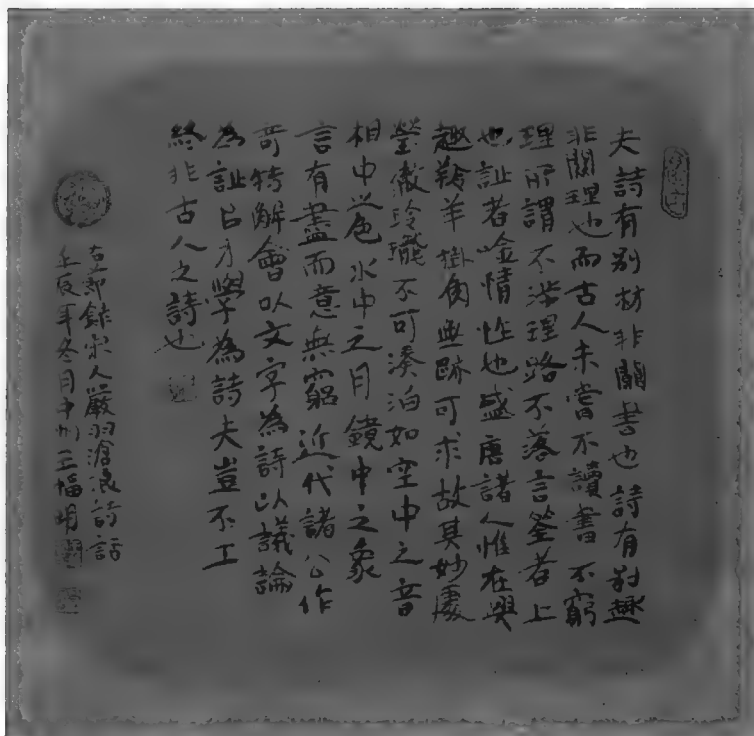 夫詩有别材非關書也詩有别趣
非關理也而古人未嘗不讀書不窮
理所謂不涉理路不落言筌者上
也詩者唫情性也盛唐諸人惟在興
趣羚羊掛角無跡可求故其妙處
瑩徹玲瓏不可湊泊如空中之音
相中之色水中之月鏡中之象
言有盡而意無窮近代諸公作
奇特解會以文字為詩以議論
為詩㠯才學為詩夫豈不工
終非古人之詩也
右節錄宋人嚴羽滄浪詩話
壬辰年冬月中州王福明